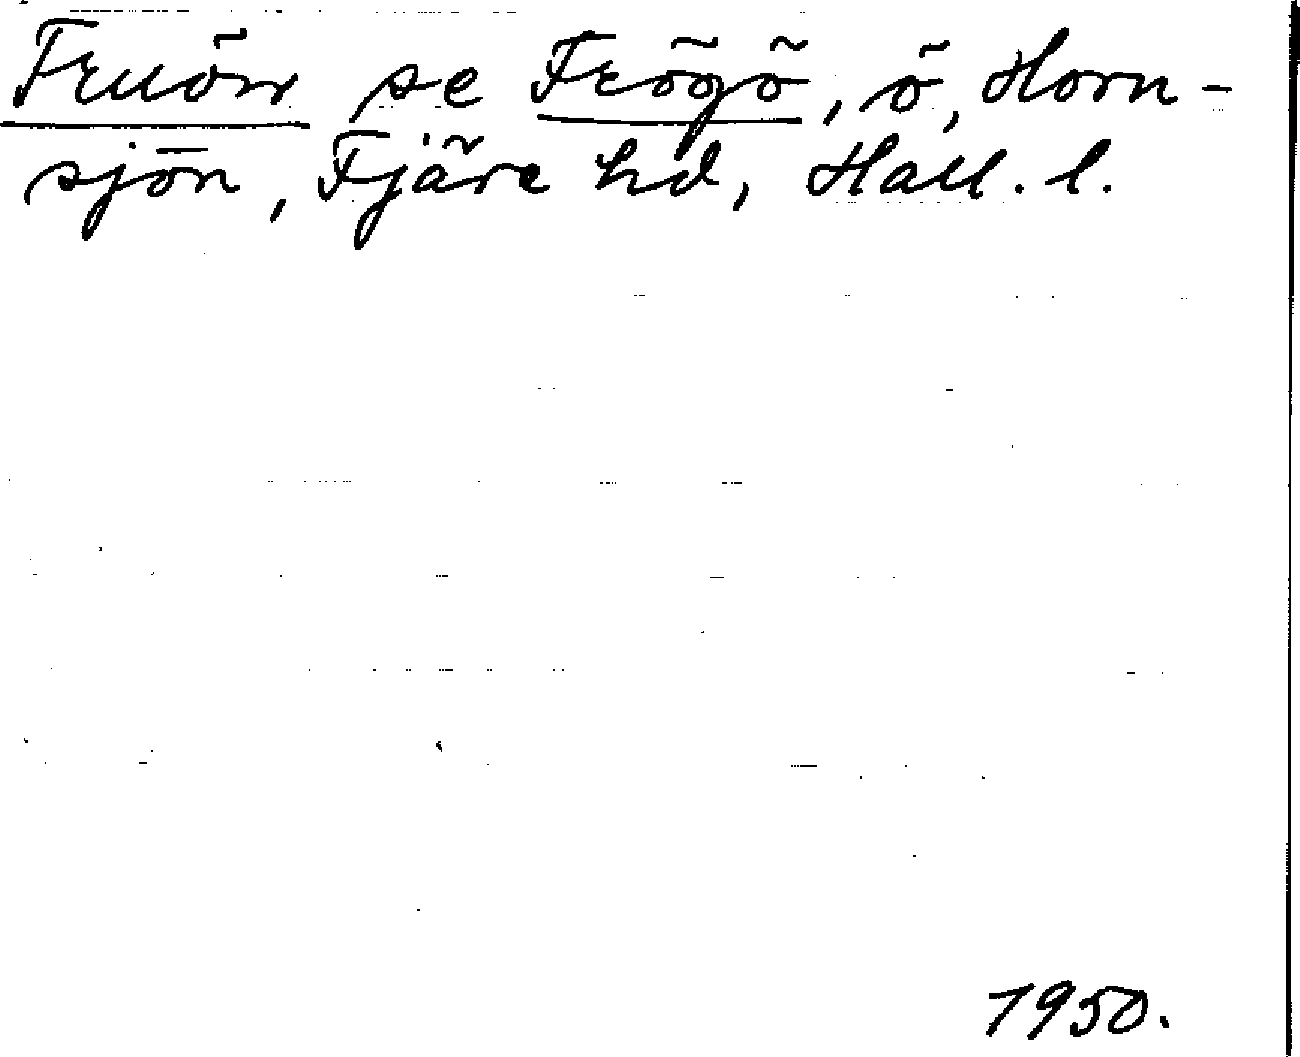 Fruön se Frögö, ö, Horn-
sjön, Fjäre hd, Hall. l.
1950.